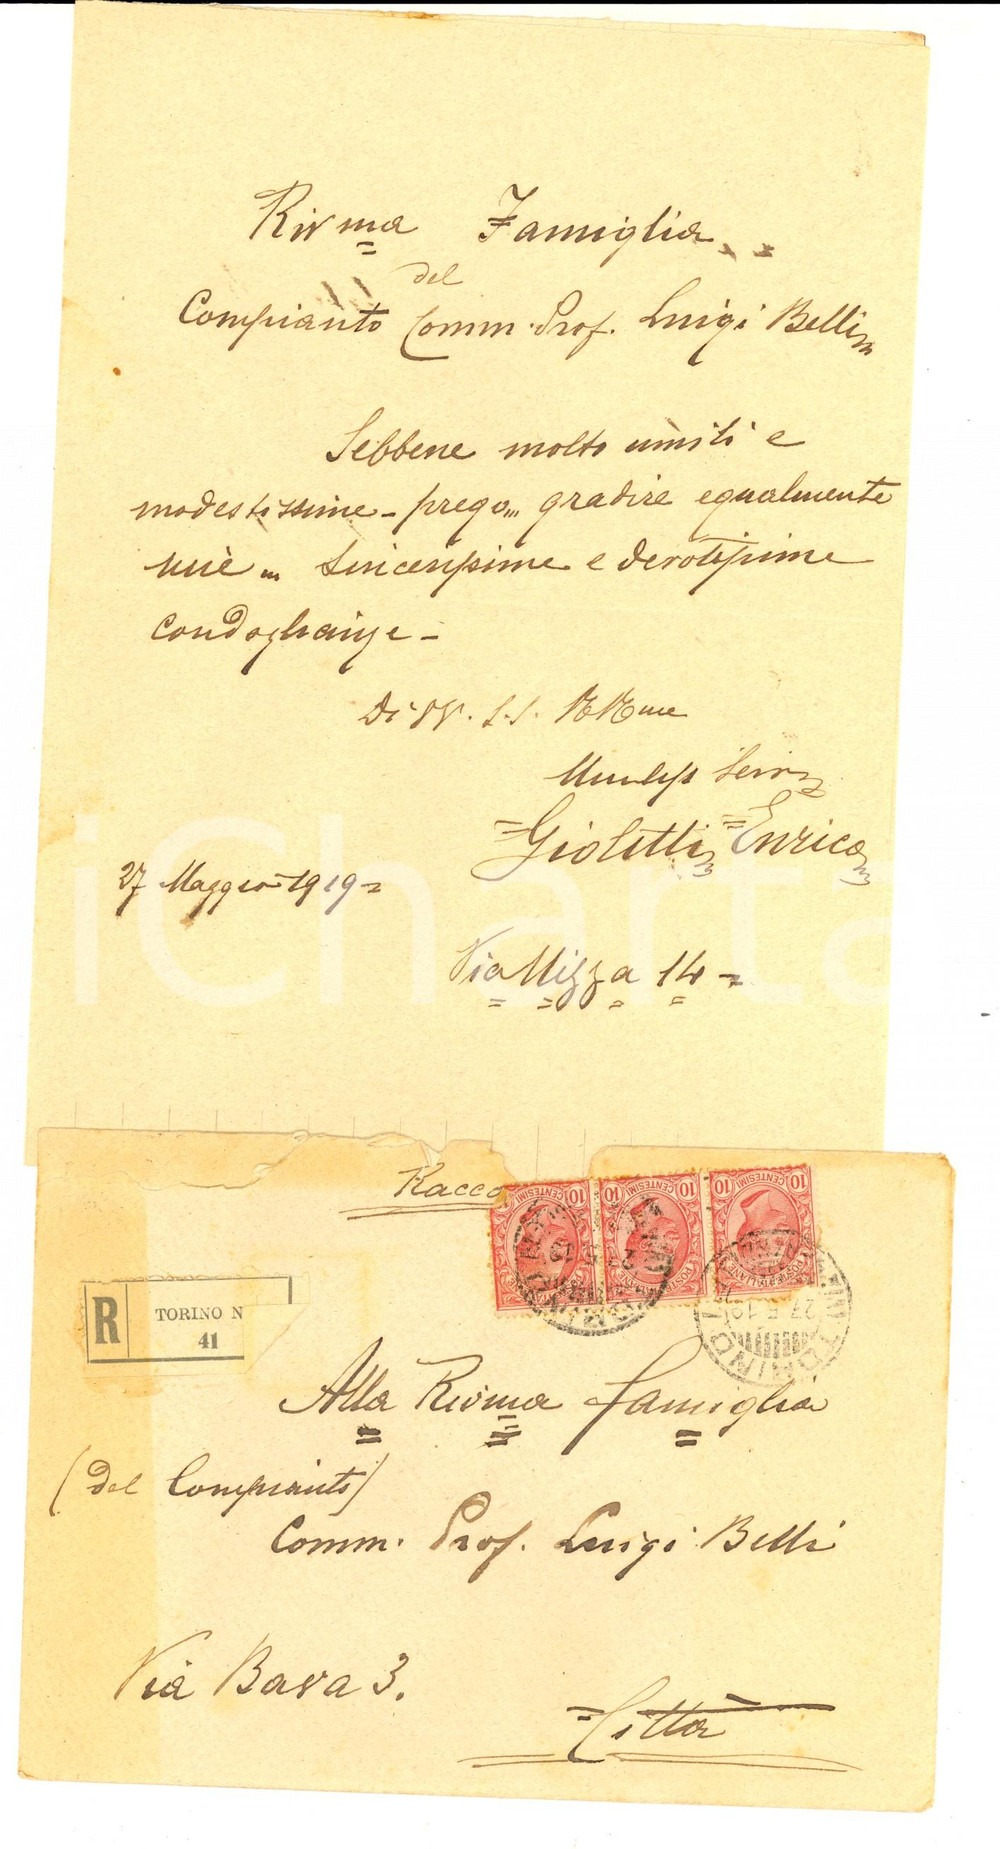 Riv ma Famiglia
del
Compianto Comm. Prof. Luigi Belli
Sebbene molto umili e
modestissime - prego gradire egualmente
mie sincerissime e devotissime
condoglianze -
Di VV. S.S. RRme
Giolitti Enrico
27 Maggio 1919 =
Via Nizza 14 =
iCharta
Racco
10 CENTESIMI 10
10 CENTESIMI 10
10 CENTESIMI 10
POSTE ITALIANE
R TORINO N
41
27.5.19
TORINO
Alla Rivma famiglia
(del Compianto)
Comm. Prof. Luigi Belli
Via Bava 3.
Città